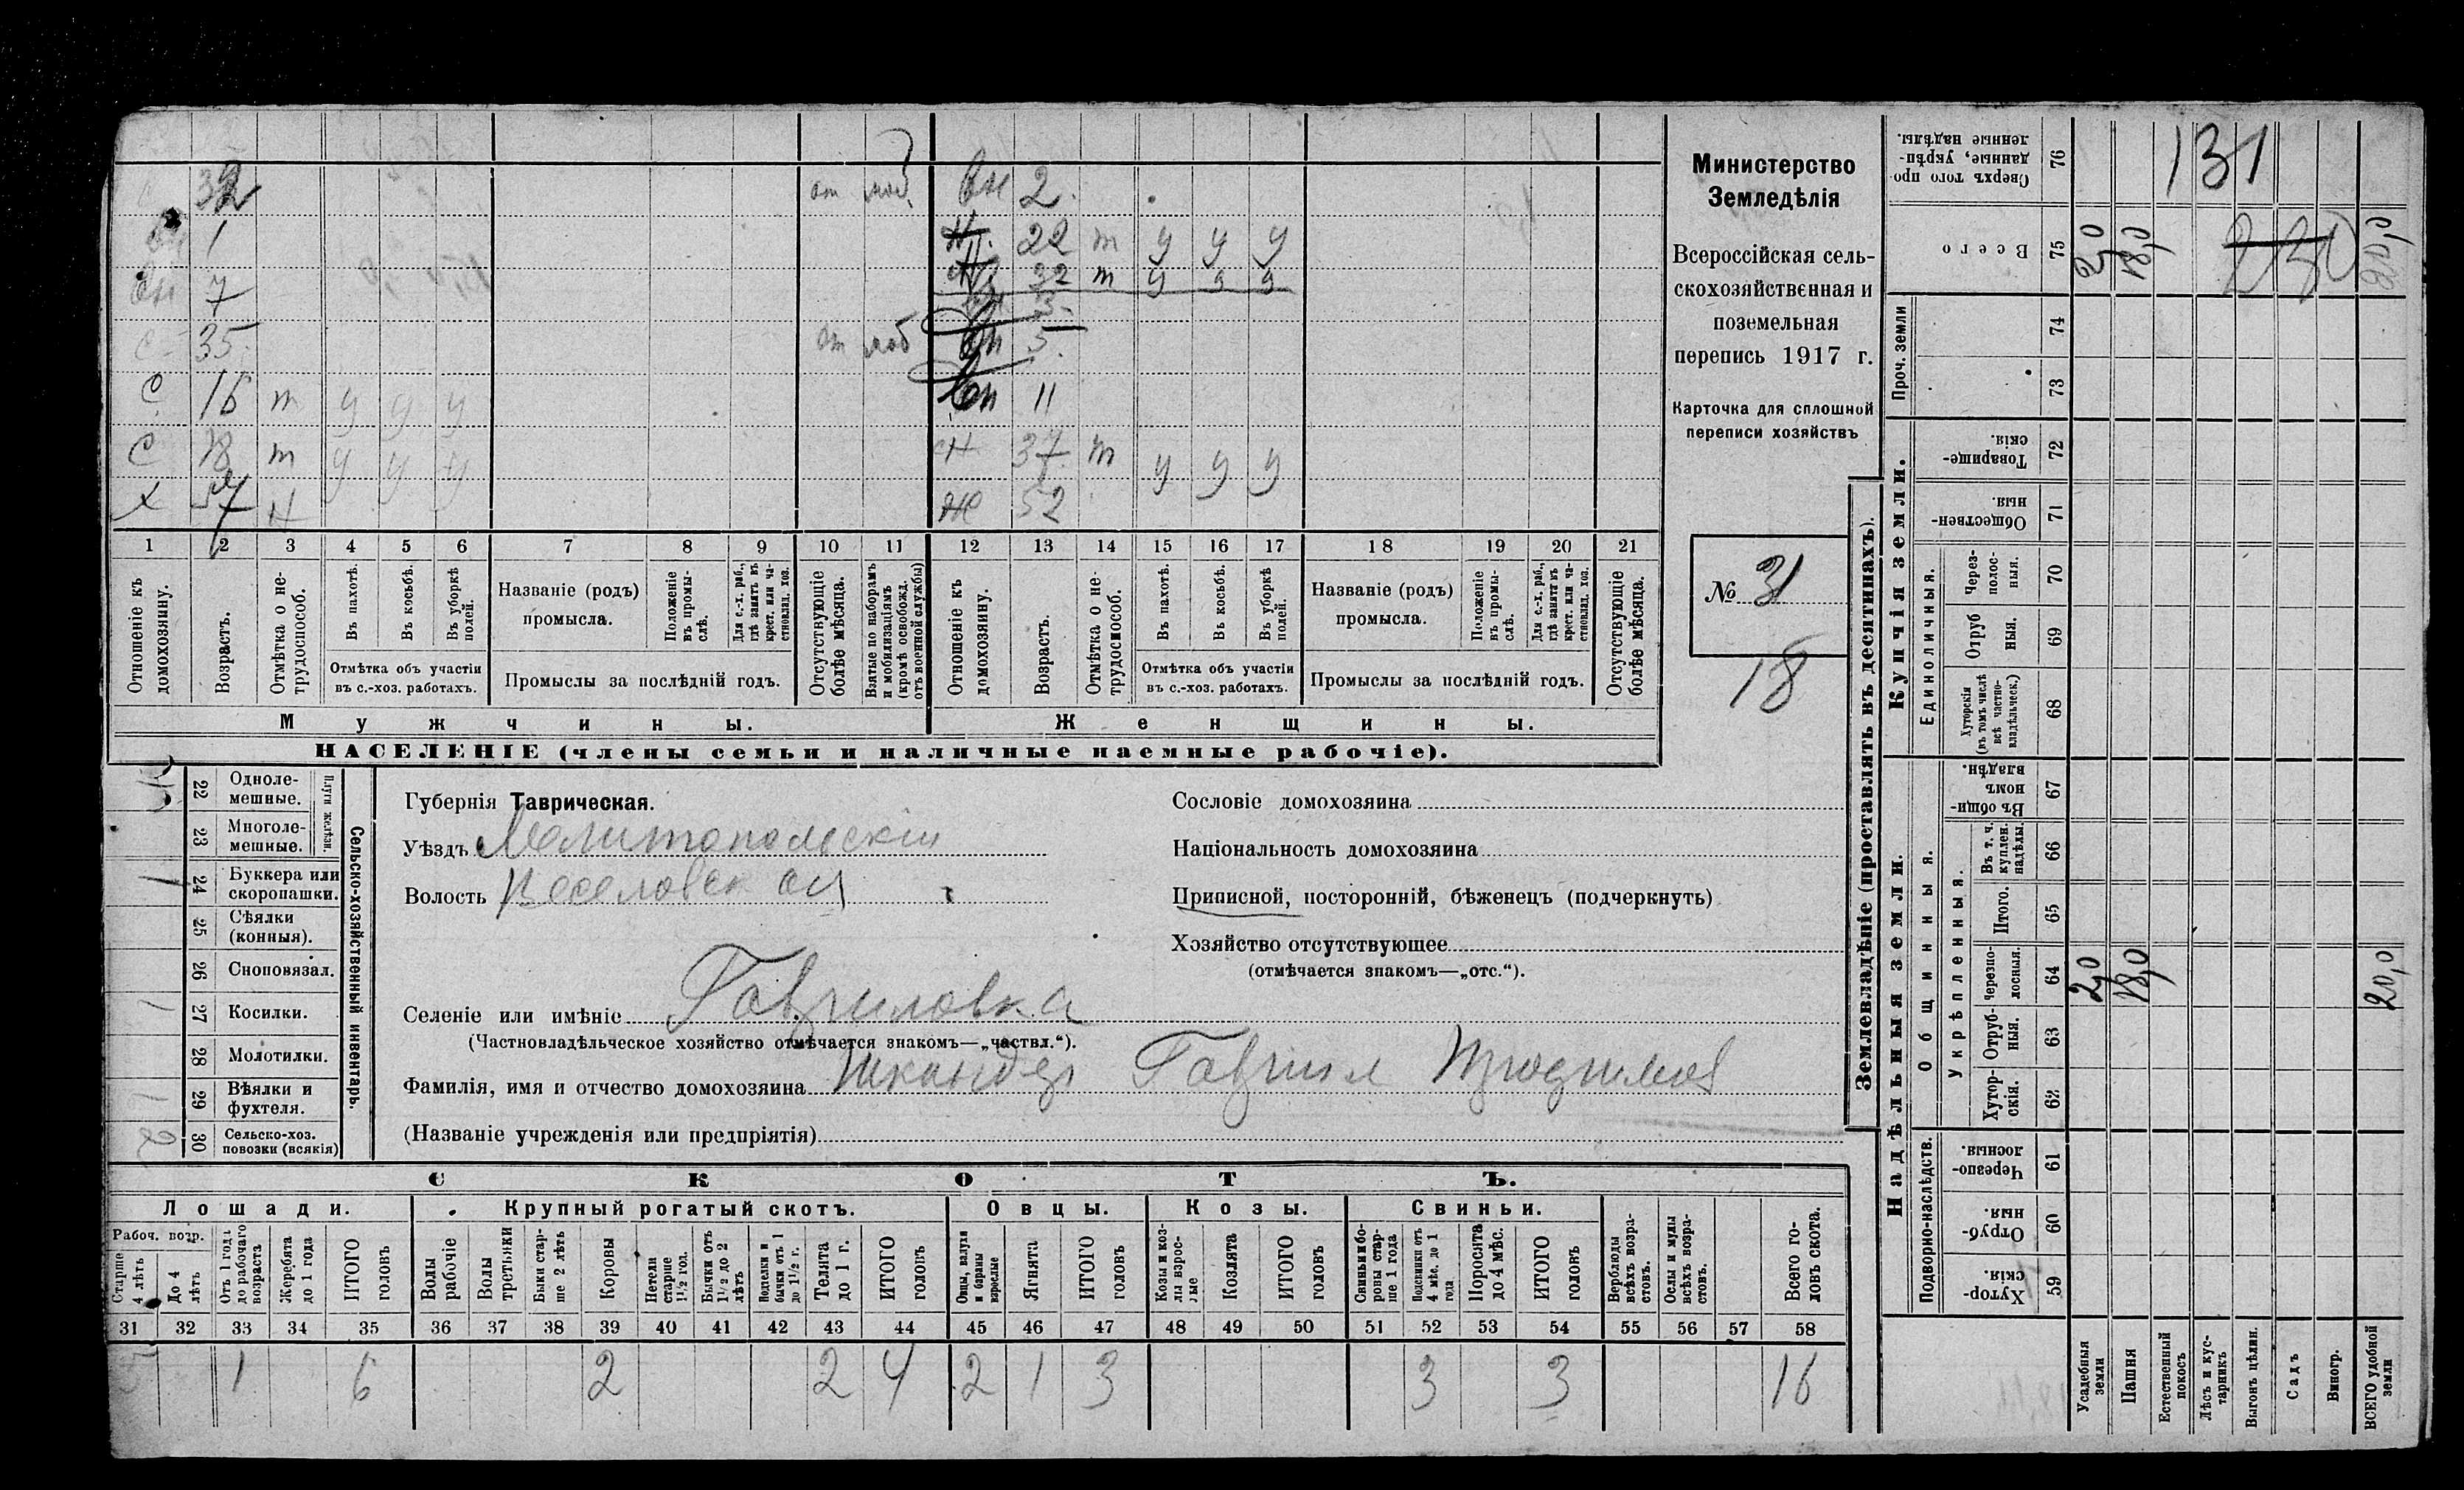 с 32 от моб вн 2
вн 1 н 22 т у у у
вн 7 н 32 т у у у
вн 3
с 35 от моб вн 5
с 16 т у у у вн 11
с 18 т у у у сн 37 т у у у
х 57 н ж 52
1 2 3 4 5 6 7 8 9 10 11 12 13 14 15 16 17 18 19 20 21
Отношеніе къ домохозяину.
Возрастъ.
Отмѣтка о нетрудоспособ.
Въ пахотѣ.
Въ косьбѣ.
Въ уборкѣ полей.
Отмѣтка объ участіи
въ с.-хоз. работахъ.
Названіе (родъ)
промысла.
Положеніе въ промыслѣ.
Для с.-х. раб., гдѣ занятъ въ крест. или частновлад. хоз.
Промыслы за послѣдній годъ.
Отсутствующіе болѣе мѣсяца.
Взятые по наборамъ и мобилизаціямъ (кромѣ освобожд. отъ военной службы)
Отношеніе къ домохозяину.
Возрастъ.
Отмѣтка о нетрудоспособ.
Въ пахотѣ.
Въ косьбѣ.
Въ уборкѣ полей.
Отмѣтка объ участіи
въ с.-хоз. работахъ.
Названіе (родъ)
промысла.
Положеніе въ промыслѣ.
Для с.-х. раб., гдѣ занятъ въ крест. или частновлад. хоз.
Промыслы за послѣдній годъ.
Отсутствующіе болѣе мѣсяца.
Мужчины.
Женщины.
НАСЕЛЕНІЕ (члены семьи и наличные наемные рабочіе).
Министерство
Земледѣлія
Всероссійская сель-
скохозяйственная и
поземельная
перепись 1917 г.
Карточка для сплошной
переписи хозяйствъ
№ 31
18
22 Одноле-
мешные.
23 Многоле-
мешные.
Плуги желѣзн.
1 24 Буккера или
скоропашки.
25 Сѣялки
(конныя).
26 Сноповязал.
1 27 Косилки.
28 Молотилки.
1 29 Вѣялки и
фухтеля.
2 30 Сельско-хоз.
повозки (всякія)
Сельско-хозяйственный инвентарь.
Губернія Таврическая.
Уѣздъ Мелитопольскій
Волость Веселовская
Селеніе или имѣніе Гавриловка
(Частновладѣльческое хозяйство отмѣчается знакомъ—„частвл.“).
Фамилія, имя и отчество домохозяина Гавриил
(Названіе учрежденія или предпріятія)
Сословіе домохозяина
Національность домохозяина
Приписной, посторонній, бѣженецъ (подчеркнуть)
Хозяйство отсутствующее
(отмѣчается знакомъ—„отс.“).
СКОТЪ.
Лошади.
Крупный рогатый скотъ.
Овцы.
Козы.
Свиньи.
Рабоч. возр.
Старше 4 лѣтъ
До 4 лѣтъ
Отъ 1 года до рабочаго возраста
Жеребята до 1 года
ИТОГО головъ
Волы рабочіе
Волы третьяки
Быки старше 2 лѣтъ
Коровы
Нетели старше 1½ год.
Бычки отъ 1½ до 2 лѣтъ
Подтелки и бычки отъ 1 до 1½ г.
Телята до 1 г.
ИТОГО головъ
Овцы, валухи и бараны взрослые
Ягнята
ИТОГО головъ
Козы и козлы взрослые
Козлята
ИТОГО головъ
Свиньи и боровы старше 1 года
Подсвинки отъ 4 мѣс. до 1 года
Поросята до 4 мѣс.
ИТОГО головъ
Верблюды всѣхъ возрастовъ.
Ослы и мулы всѣхъ возрастовъ.
Всего головъ скота.
31 32 33 34 35 36 37 38 39 40 41 42 43 44 45 46 47 48 49 50 51 52 53 54 55 56 57 58
5 1 6 2 2 4 2 1 3 3 3 16
Землевладѣніе (проставлять въ десятинахъ).
Купчія земли.
Надѣльныя земли.
Сверхъ того проданные, укрѣпленные надѣлы. 76 131
Всего 75 2,0 18,0 230 20,0
Проч. земли
74
73
Товарищескія. 72
Общественныя. 71
Единоличныя.
Черезполосныя. 70
Отрубныя. 69
Хуторскія (въ томъ числѣ всѣ частновладѣльческ.) 68
Общинныя.
Въ общинномъ владѣн. 67
Укрѣпленныя.
Въ т. ч. куплен. надѣлы. 66
Итого. 65
Черезполосныя. 64 2,0 18,0 20,0
Отрубныя. 63
Хуторскія. 62
Подворно-наслѣдств.
Черезполосныя. 61
Отрубныя. 60
Хуторскія. 59
Усадебныя земли
Пашня
Естественный покосъ
Лѣсъ и кустарникъ
Выгонъ цѣлин.
Садъ
Виногр.
ВСЕГО удобной земли